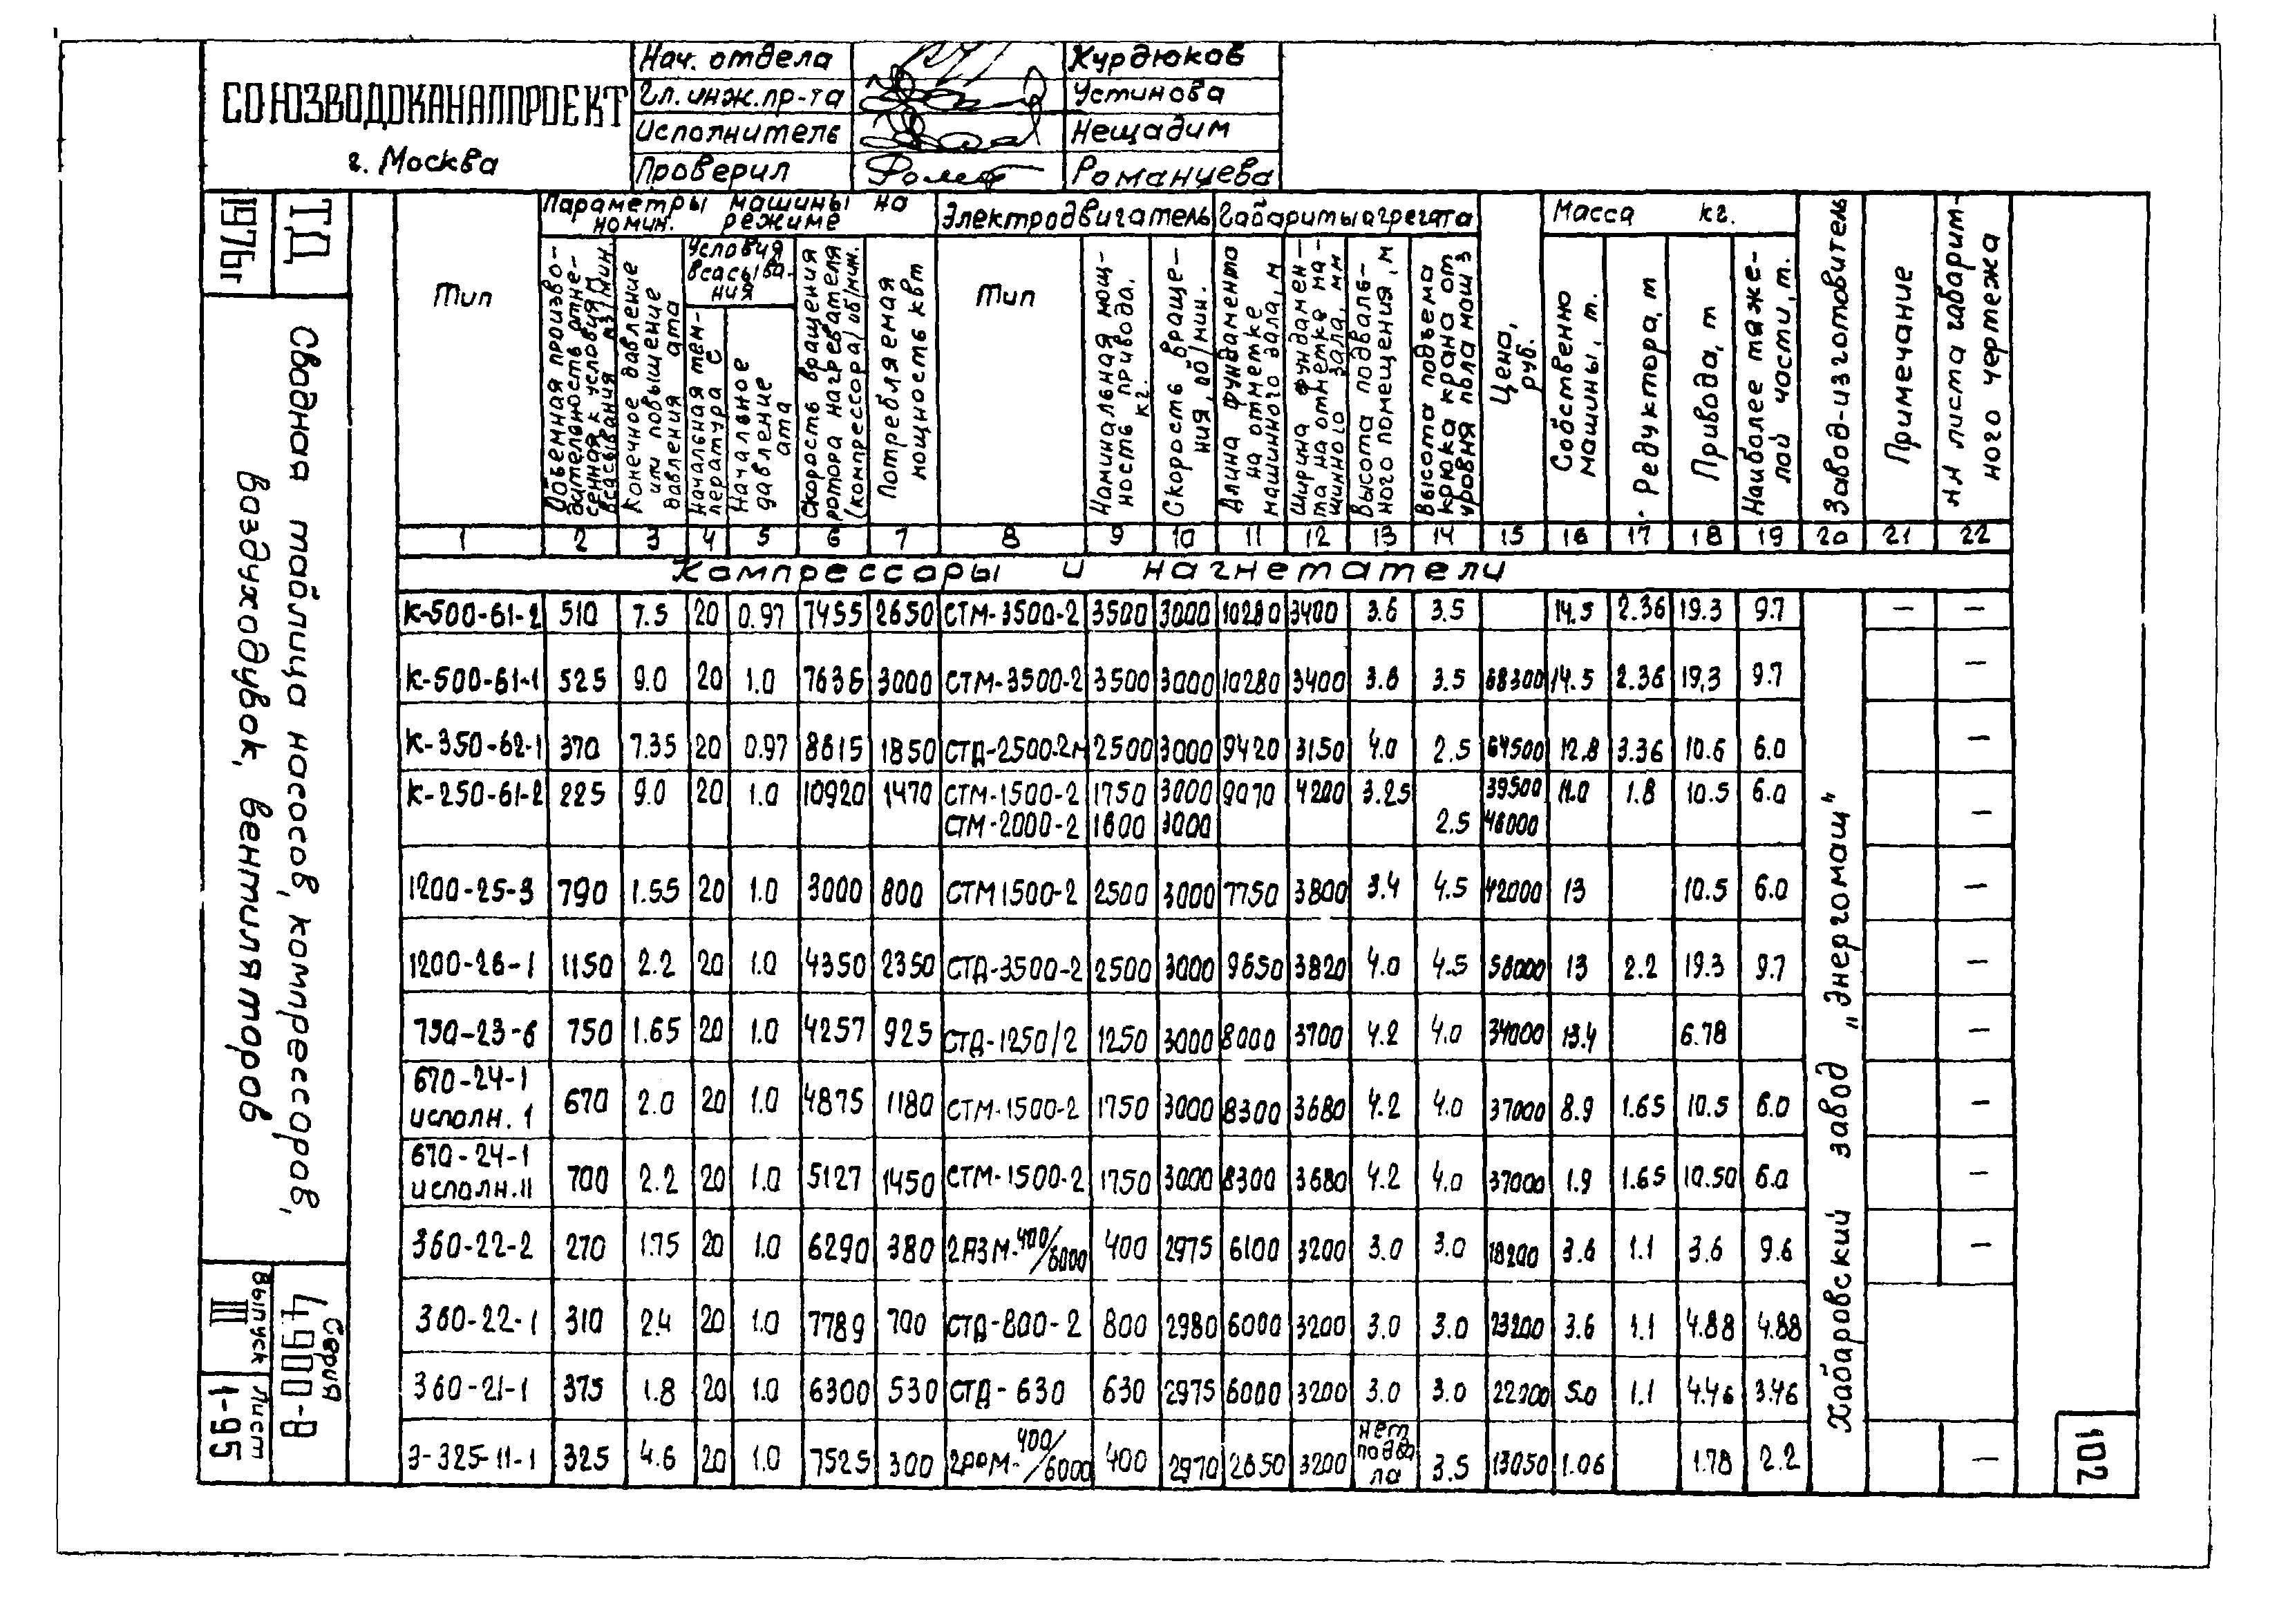 СОЮЗВОДОКАНАЛПРОЕКТ
г. Москва
Нач. отдела Курдюков
Гл. инж. пр-та Устинова
Исполнитель Нещадим
Проверил Романцева
ТД
1976г
Сводная таблица насосов, компрессоров,
воздуходувок, вентиляторов
Серия
4.900-8
Выпуск
III
Лист
1-95
Тип
Параметры машины на
номин. режиме
Объемная произво-
дительность отне-
сенная к условиям
всасывания м3/мин.
Конечное давление
или повышение
давления ата
Условия
всасыва-
ния
Начальная тем-
пература С
Начальное
давление
ата
Скорость вращения
ротора нагревателя
(компрессора) об/мин.
Потребляемая
мощность квт
Электродвигатель
Тип
Наминальная мощ-
ность привода,
кг.
Скорость враще-
ния, об/мин.
Габариты агрегата
Длина фундамента
на отметке
машинного зала, м
Ширина фундамен-
та на отметке ма-
шинного зала, мм
Высота подваль-
ного помещения, м
Высота подъема
крюка крана от
уровня пола маш з
Цена,
руб.
Масса кг.
Собственно
машины, т.
Редуктора, т
Привода, т
Наиболее тяже-
лой части, т.
Завод-изготовитель
Примечание
НН листа габарит-
ного чертежа
1 2 3 4 5 6 7 8 9 10 11 12 13 14 15 16 17 18 19 20 21 22
Компрессоры и нагнетатели
К-500-61-2 510 7.5 20 0.97 7455 2650 СТМ-3500-2 3500 3000 10280 3400 3.6 3.5 14.5 2.36 19.3 9.7 — —
К-500-61-1 525 9.0 20 1.0 7636 3000 СТМ-3500-2 3500 3000 10280 3400 3.6 3.5 68300 14.5 2.36 19,3 9.7 —
К-350-62-1 370 7.35 20 0.97 8615 1850 СТД-2500-2м 2500 3000 9420 3150 4.0 2.5 64500 12.8 3.36 10.6 6.0 —
К-250-61-2 225 9.0 20 1.0 10920 1470 СТМ-1500-2 1750 3000 9070 4200 3.25 39500 11.0 1.8 10.5 6.0
СТМ-2000-2 1600 3000 2.5 46000 —
1200-25-3 790 1.55 20 1.0 3000 800 СТМ 1500-2 2500 3000 7750 3800 3.4 4.5 42000 13 10.5 6.0 —
1200-26-1 1150 2.2 20 1.0 4350 2350 СТД-3500-2 2500 3000 9650 3820 4.0 4.5 56000 13 2.2 19.3 9.7 —
750-23-6 750 1.65 20 1.0 4257 925 СТД-1250/2 1250 3000 8000 3700 4.2 4.0 34000 13.4 6.78 —
670-24-1
исполн. 1 670 2.0 20 1.0 4875 1180 СТМ-1500-2 1750 3000 8300 3680 4.2 4.0 37000 8.9 1.65 10.5 6.0 —
670-24-1
исполн. II 700 2.2 20 1.0 5127 1450 СТМ-1500-2 1750 3000 8300 3680 4.2 4.0 37000 1.9 1.65 10.50 6.0 —
360-22-2 270 1.75 20 1.0 6290 380 2АЗМ-400/6000 400 2975 6100 3200 3.0 3.0 18200 3.6 1.1 3.6 9.6 —
360-22-1 310 2.4 20 1.0 7789 700 СТД-800-2 800 2980 6000 3200 3.0 3.0 23200 3.6 1.1 4.88 4.88
360-21-1 375 1.8 20 1.0 6300 530 СТД-630 630 2975 6000 3200 3.0 3.0 22200 5.0 1.1 4.46 3.46
Э-325-11-1 325 4.6 20 1.0 7525 300 400/6000 400 2970 2650 3200 нет
подва
ла 3.5 13050 1.06 1.78 2.2 —
Хабаровский завод „Энергомаш"
102